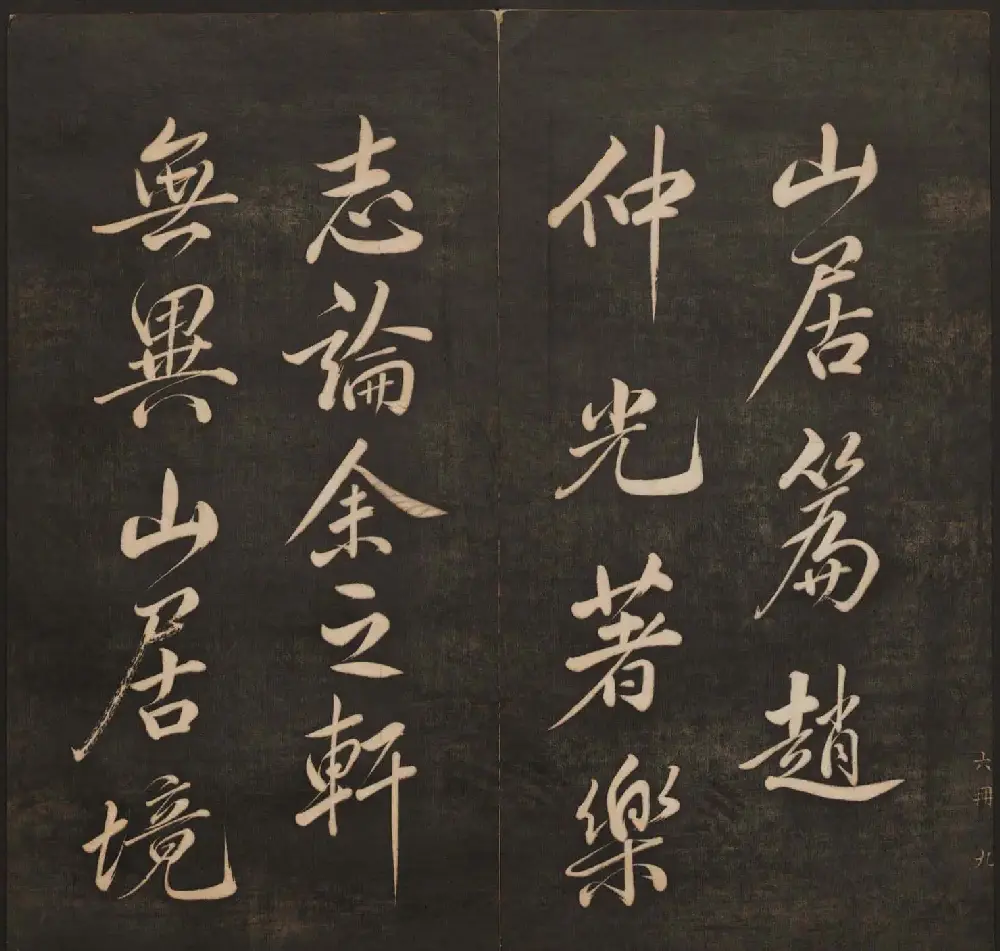 山居篇趙
仲光著樂
志論余之軒
無異山居境
六冊 九